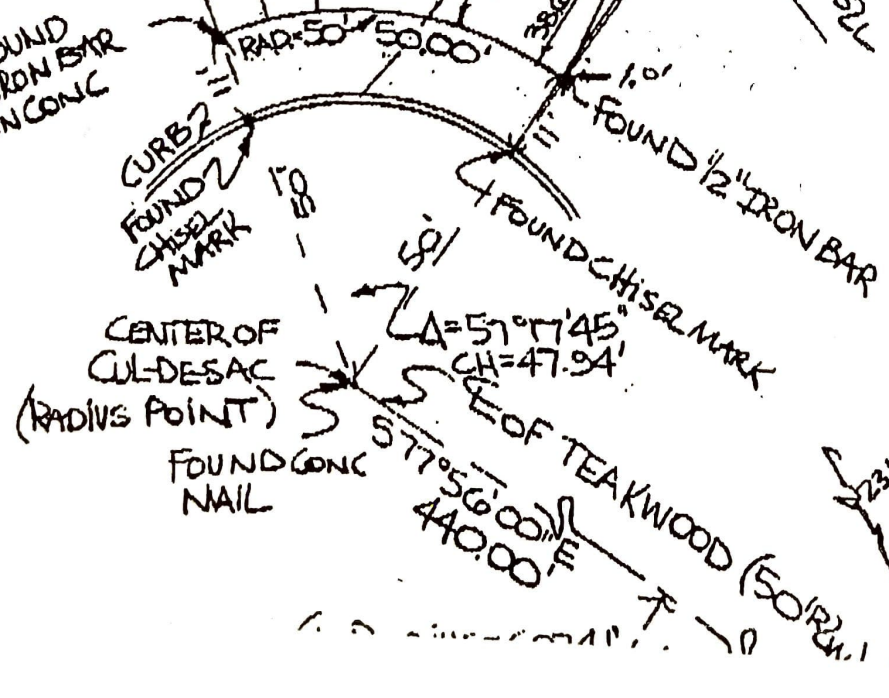 OUND
RON BAR
N CONC
RAD.=50' 50.00'
1.0'
FOUND 1/2" IRON BAR
CURB
FOUND
CHISEL
MARK
50'
50'
FOUND CHISEL MARK
Δ=57°17'45"
CH=47.94'
CENTER OF
CUL-DESAC
(RADIUS POINT)
FOUND CONC
NAIL
℄ OF TEAKWOOD (50'R)
S77°56'00"E
440.00'
23'